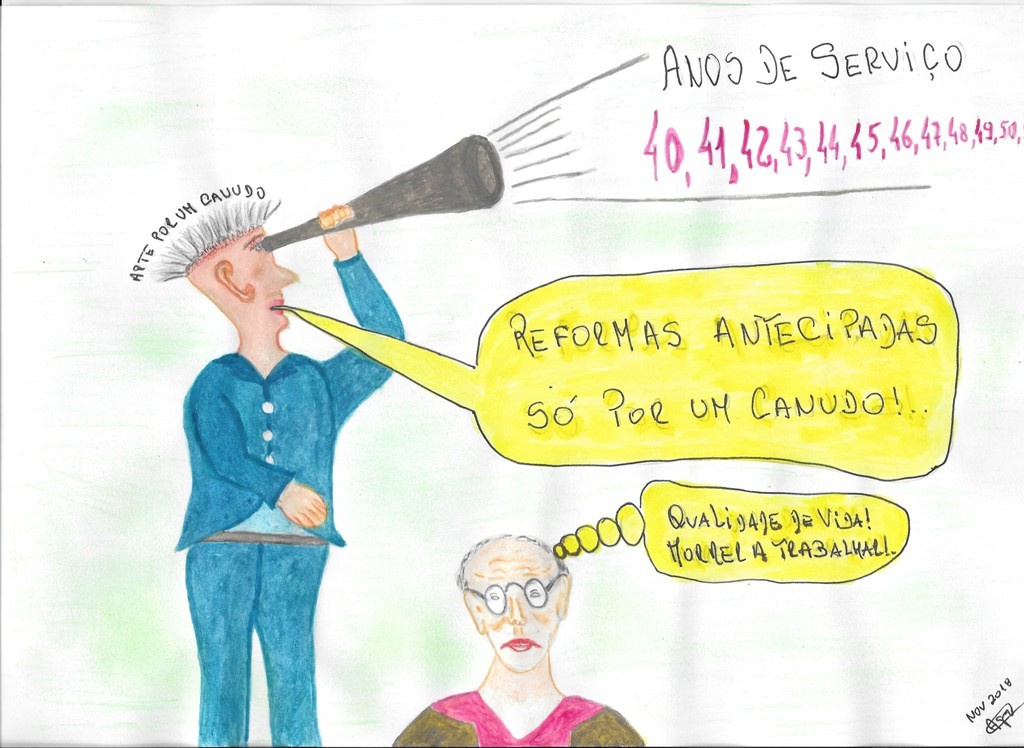 ANOS DE SERVIÇO
40, 41, 42, 43, 44, 45, 46, 47, 48, 49, 50,
ARTE POR UM CANUDO
REFORMAS ANTECIPADAS
SÓ POR UM CANUDO!..
QUALIDADE DE VIDA!
MORRER A TRABALHAR!.
NOV 2018